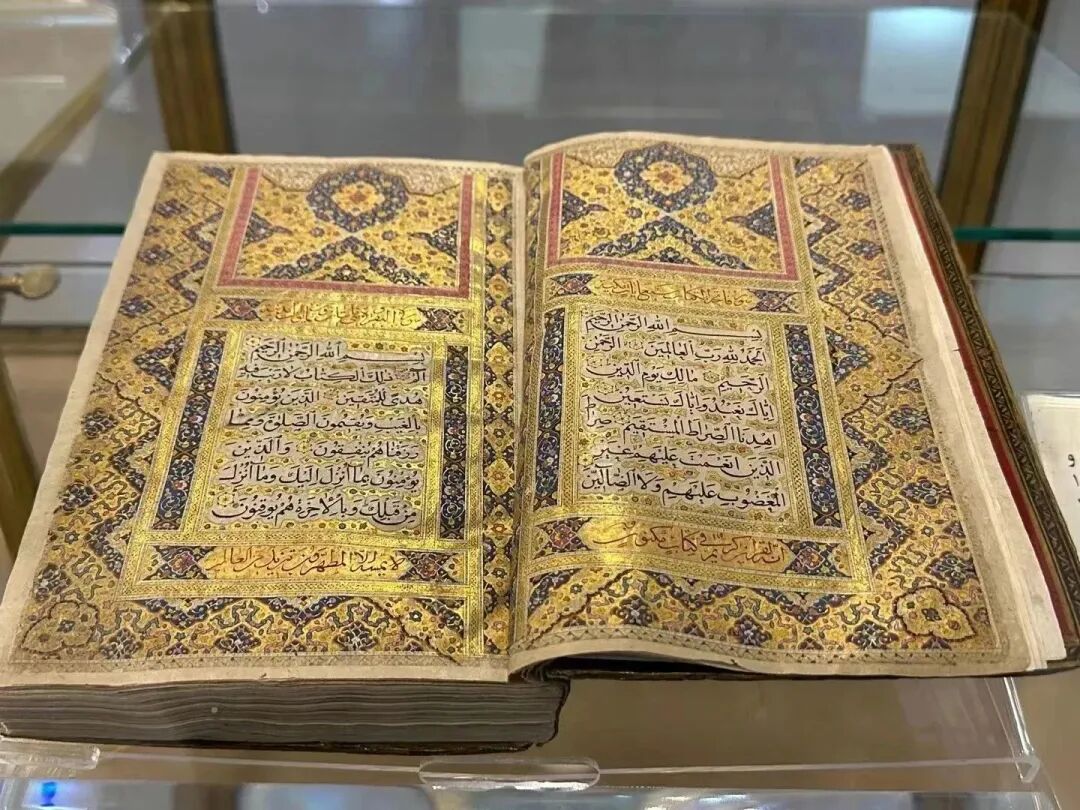 فاتحة الكتاب
بسم الله الرحمن الرحيم
الحمد لله رب العالمين الرحمن
الرحيم مالك يوم الدين
اياك نعبد واياك نستعين
اهدنا الصراط المستقيم صراط
الذين انعمت عليهم غير
المغضوب عليهم ولا الضالين
انه لقران كريم في كتاب مكنون
سورة البقرة
بسم الله الرحمن الرحيم
الم ذلك الكتاب لا ريب فيه
هدى للمتقين الذين يؤمنون
بالغيب ويقيمون الصلوة ومما
رزقناهم ينفقون والذين
يؤمنون بما انزل اليك وما انزل
من قبلك وبالاخرة هم يوقنون
لا يمسه الا المطهرون تنزيل من رب العالمين